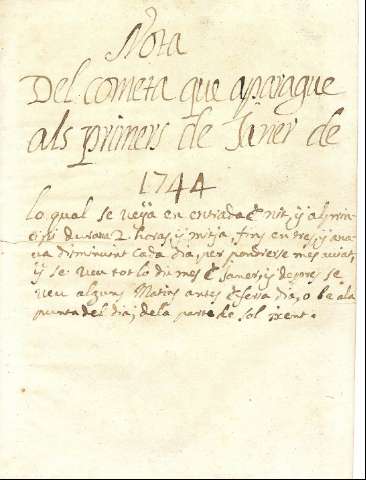 Nota
Del cometa que aparague
als primers de Jiner de
1744
lo qual se veÿa en entrada de nit, ÿ al prin-
cipi durava 2 horas, ÿ mitja, fins en tres, ÿ ana-
va disminuint cada dia, per pondrerse mes aviat,
ÿ se veu tot lo dit mes de Janer, ÿ despres se
veu alguns Matins antes de fersa dia, o be a la
punta del dia; de la part de Sol ixent.